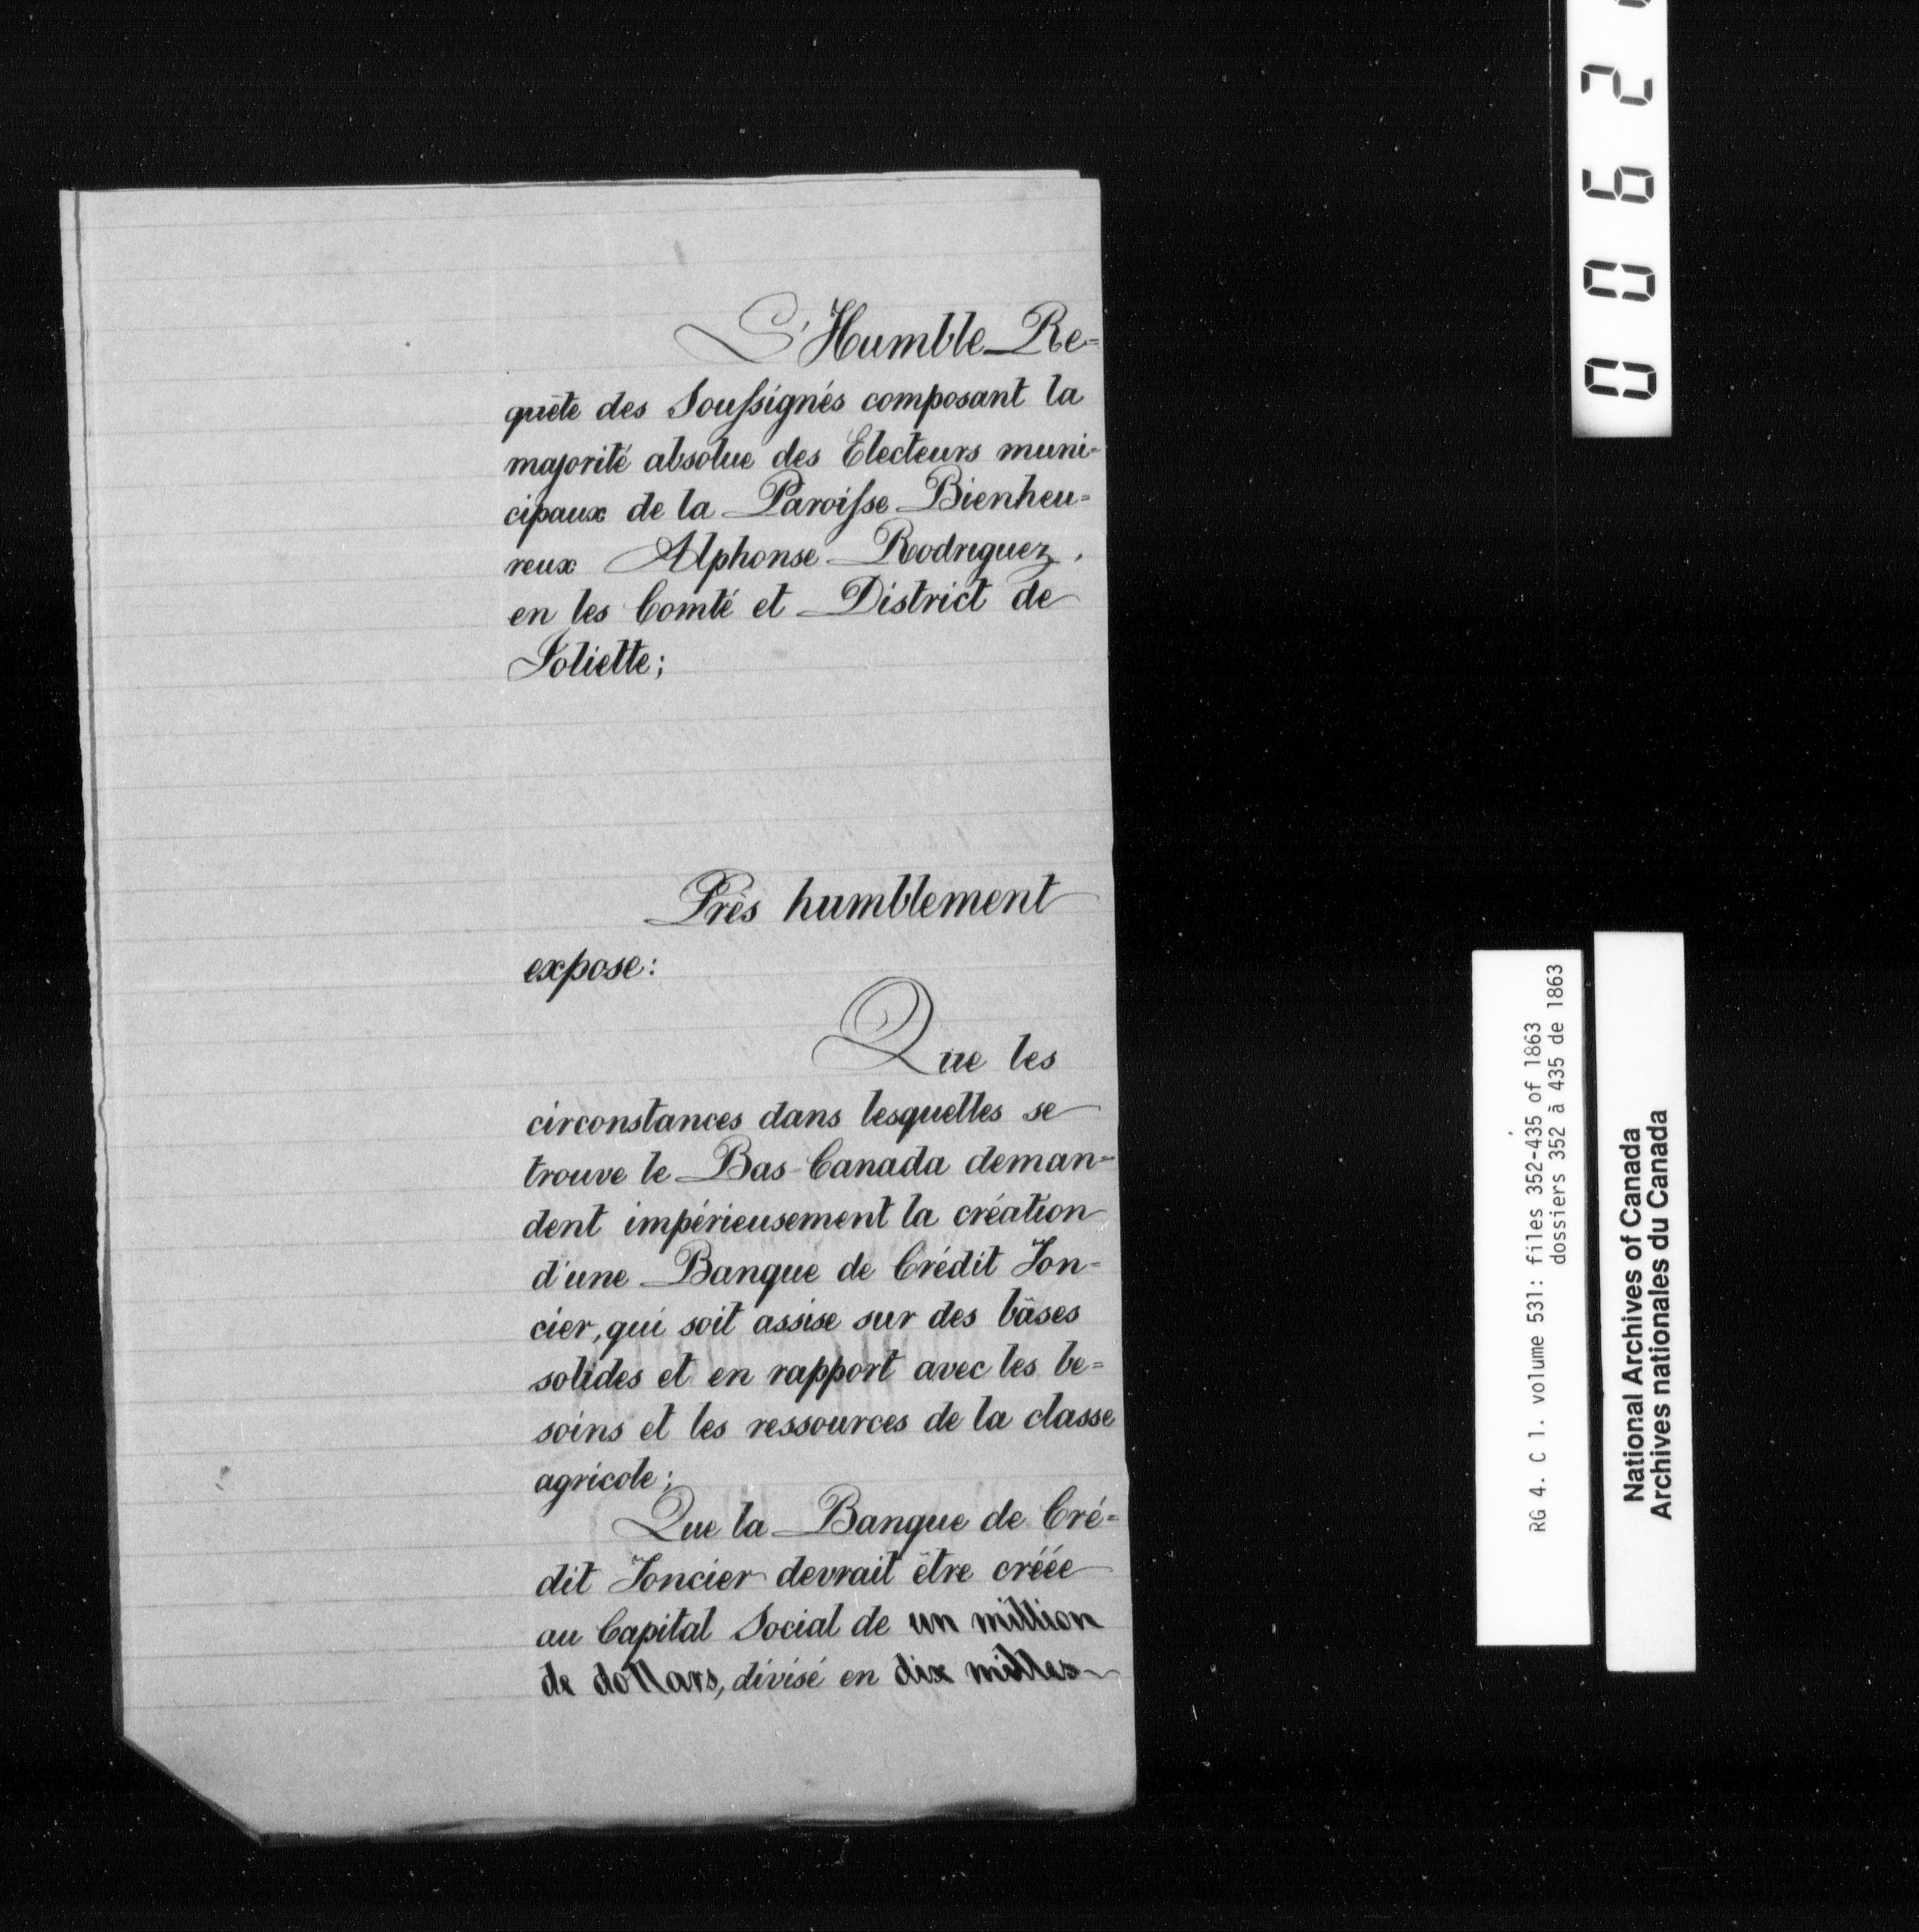 L'Humble Re=
quête des Soussignés composant la
majorité absolue des Electeurs muni-
cipaux de la Paroisse Bienheu=
reux Alphonse Rodriguez,
en les Comté et District de
Joliette;
Très humblement
expose:
Que les
circonstances dans lesquelles se
trouve le Bas-Canada deman=
dent impérieusement la création
d'une Banque de Crédit Fon=
cier, qui soit assise sur des bâses
solides et en rapport avec les be=
soins et les ressources de la classe
agricole;
Que la Banque de Cré=
dit Foncier devrait être créée
au Capital Social de un million
de dollars, divisé en dix milles
0062
RG 4. C 1. volume 531: files 352-435 of 1863
dossiers 352 à 435 de 1863
National Archives of Canada
Archives nationales du Canada